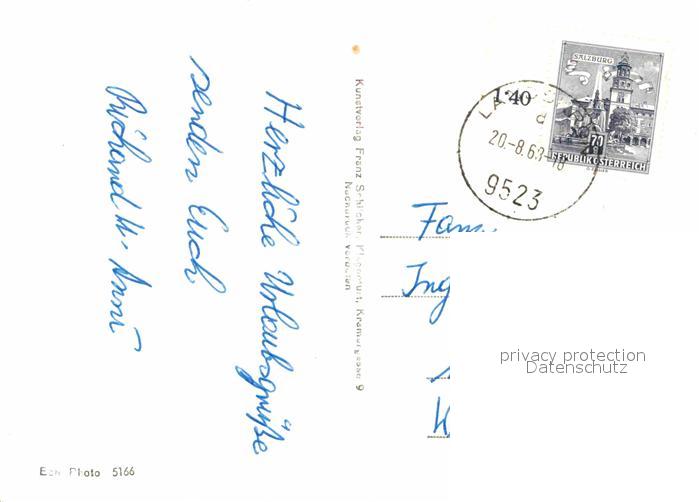 Herzliche Urlaubsgrüße
senden Euch
Richard u. Anni
Kunstverlag Franz Schilcher, Klagenfurt, Kramergasse 9
Nachdruck verboten
SALZBURG
1·40
70
REPUBLIK ÖSTERREICH
20.-8.68-18
d
9523
Fam.
Ing
privacy protection
Datenschutz
Photo 5166